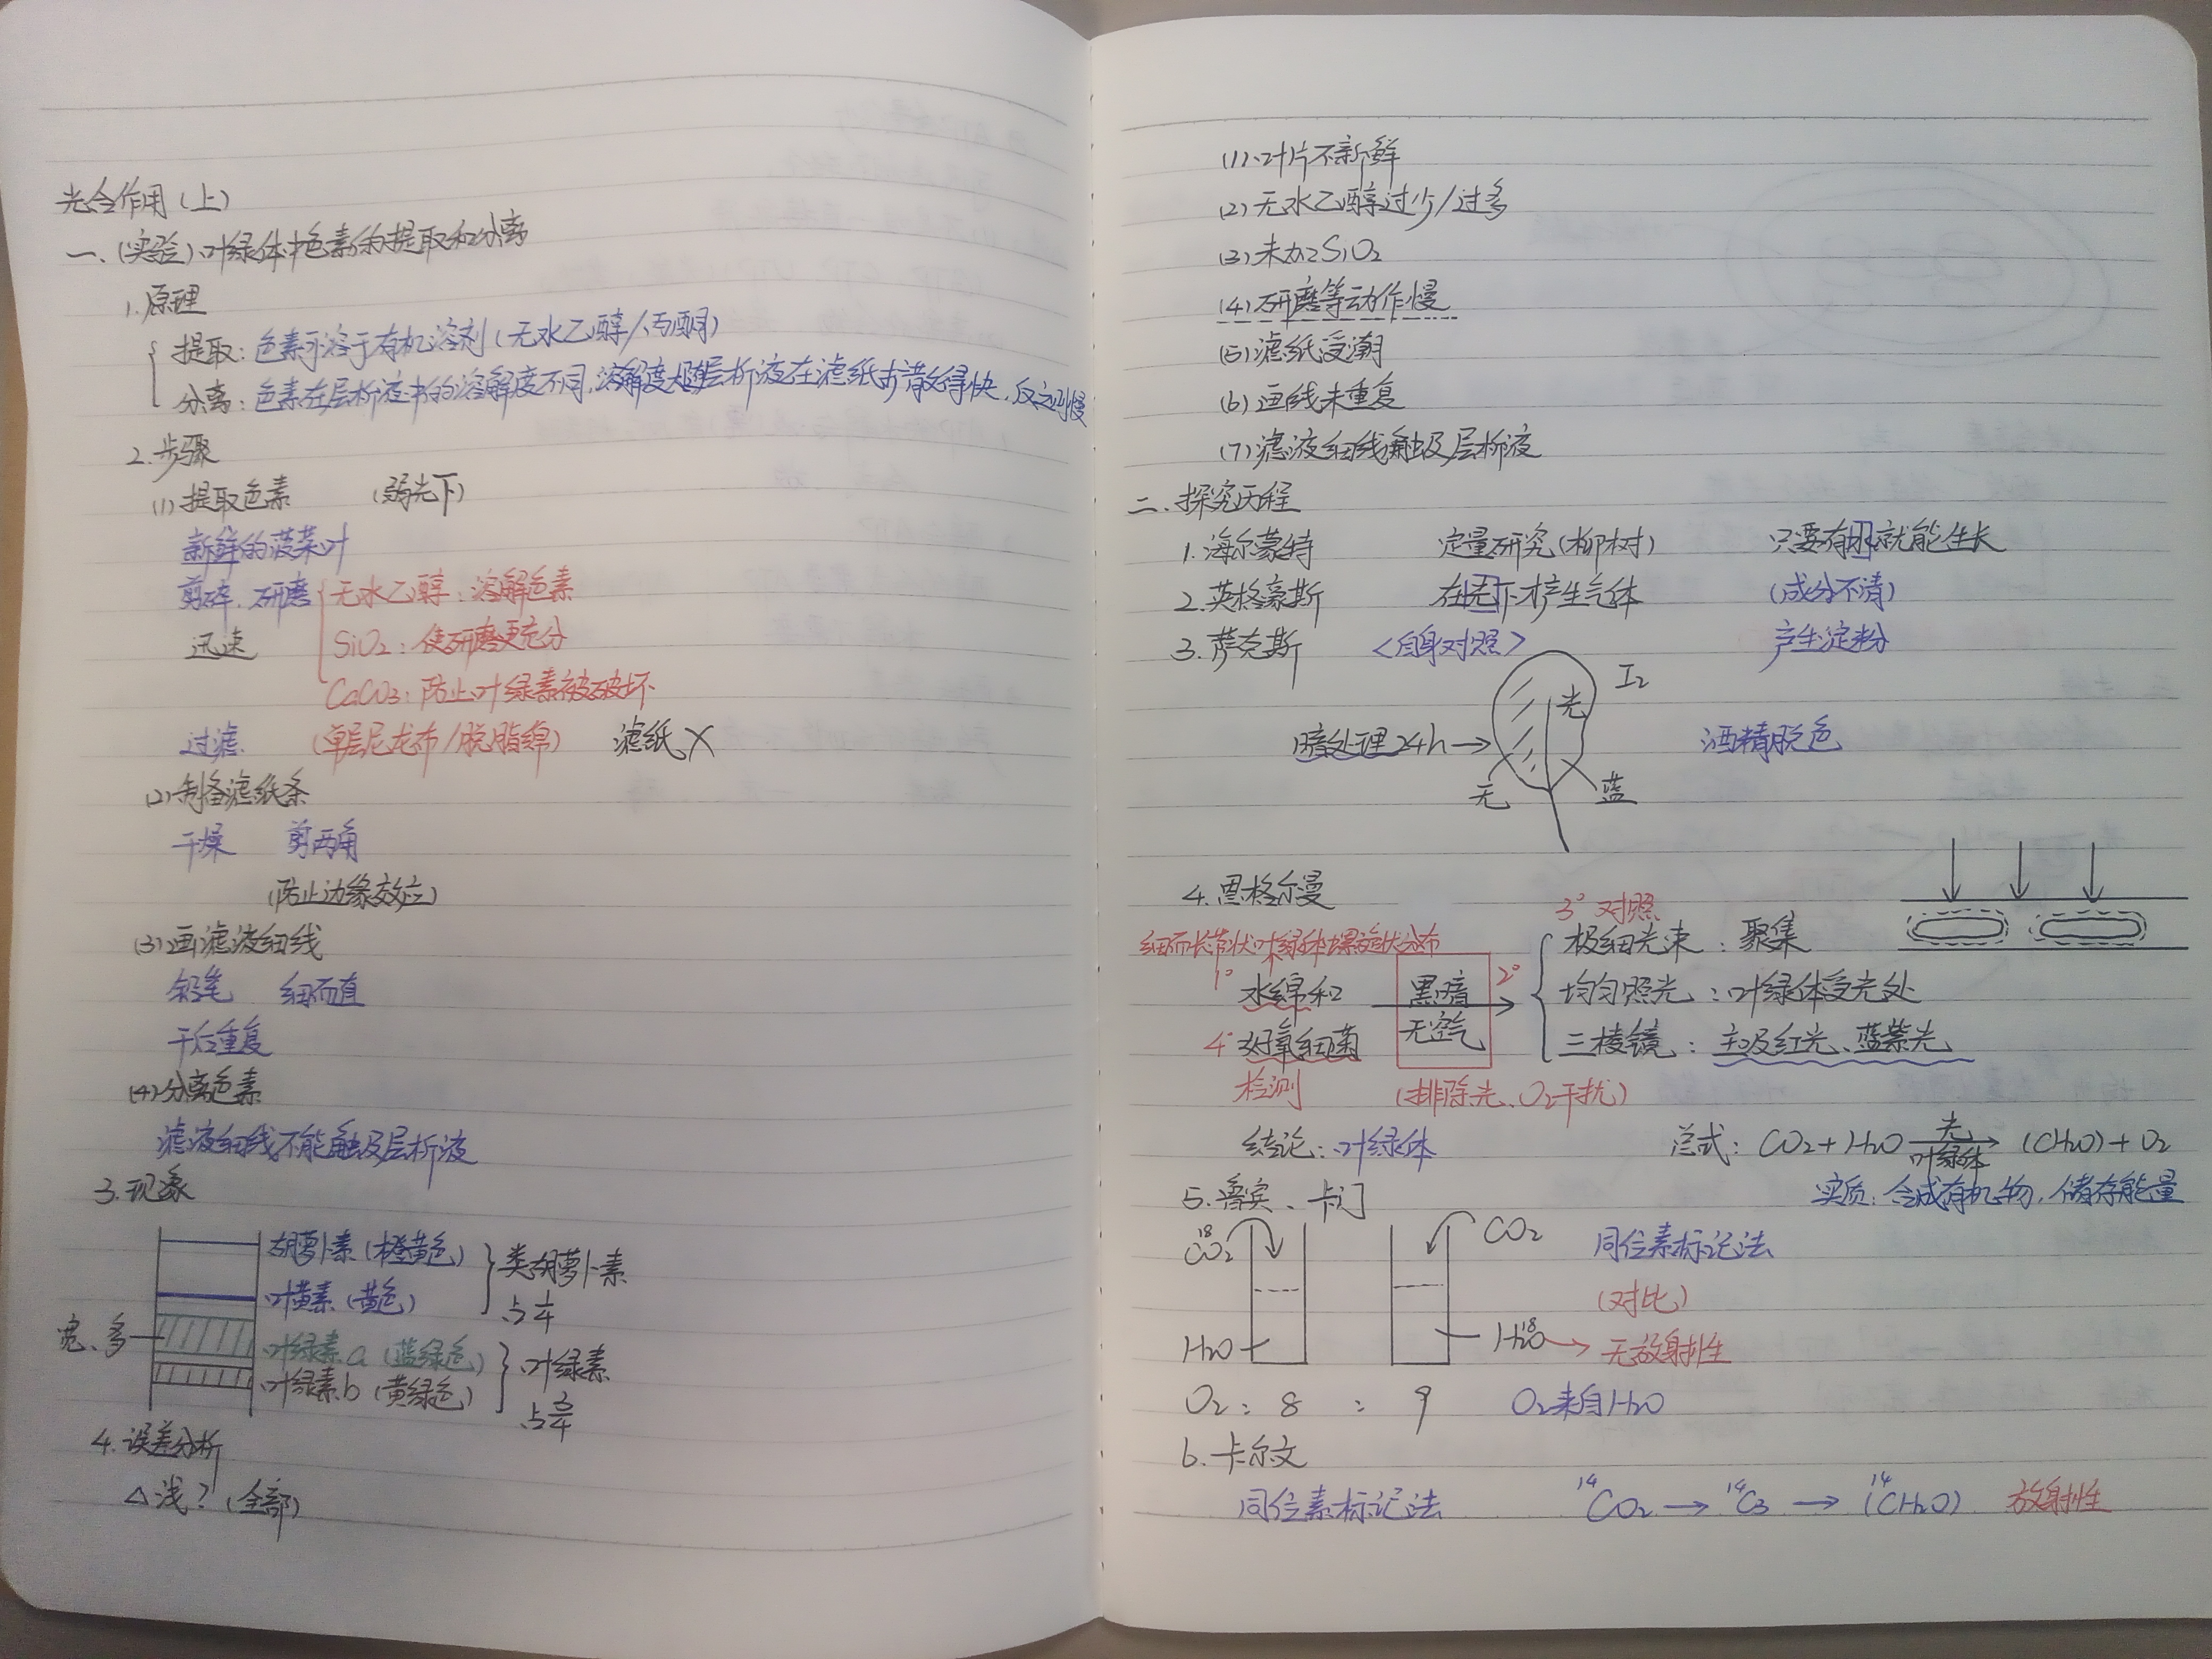 光合作用(上)
一、(实验)叶绿体中色素的提取和分离
1.原理
提取：色素可溶于有机溶剂(无水乙醇/丙酮)
分离：色素在层析液中的溶解度不同,溶解度大随层析液在滤纸扩散得快,反之则慢
2.步骤
(1)提取色素 (弱光下)
新鲜的菠菜叶
剪碎、研磨 无水乙醇：溶解色素
迅速 SiO2：使研磨更充分
CaCO3：防止叶绿素被破坏
过滤 (单层尼龙布/脱脂绵) 滤纸 X
(2)制备滤纸条
干燥 剪两角
(防止边缘效应)
(3)画滤液细线
铅笔 细而直
干后重复
(4)分离色素
滤液细线不能触及层析液
3.现象
胡萝卜素(橙黄色) 类胡萝卜素
叶黄素(黄色) 占1/4
宽、多 叶绿素a(蓝绿色) 叶绿素
叶绿素b(黄绿色) 占3/4
4.误差分析
△浅？(全部)
(1)叶片不新鲜
(2)无水乙醇过少/过多
(3)未加SiO2
(4)研磨等动作慢
(5)滤纸受潮
(6)画线未重复
(7)滤液细线触及层析液
二、探究历程
1.海尔蒙特 定量研究(柳树) 只要有水就能生长
2.英格豪斯 在光下才产生气体 (成分不清)
3.萨克斯 <自身对照> 产生淀粉
I2
光
暗处理24h→ 酒精脱色
无 蓝
4.恩格尔曼
3°对照
细而长带状叶绿体螺旋状分布 极细光束：聚集
1° 水绵和 黑暗 2° 均匀照光：叶绿体受光处
4° 好氧细菌 无空气 三棱镜：主吸红光、蓝紫光
检测 (排除光、O2干扰)
结论：叶绿体 总式：CO2+H2O 光→叶绿体 (CH2O)+O2
5.鲁宾、卡门 实质：合成有机物,储存能量
C18O2 CO2 同位素标记法
(对比)
H2O H218O→无放射性
O2：8 ： 9 O2来自H2O
6.卡尔文
同位素标记法 14CO2→14C3→(14CH2O) 放射性